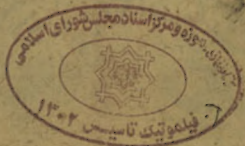 کتابخانه، موزه و مرکز اسناد مجلس شورای اسلامی
فیلموتیک تاسیس ۱۳۰۲